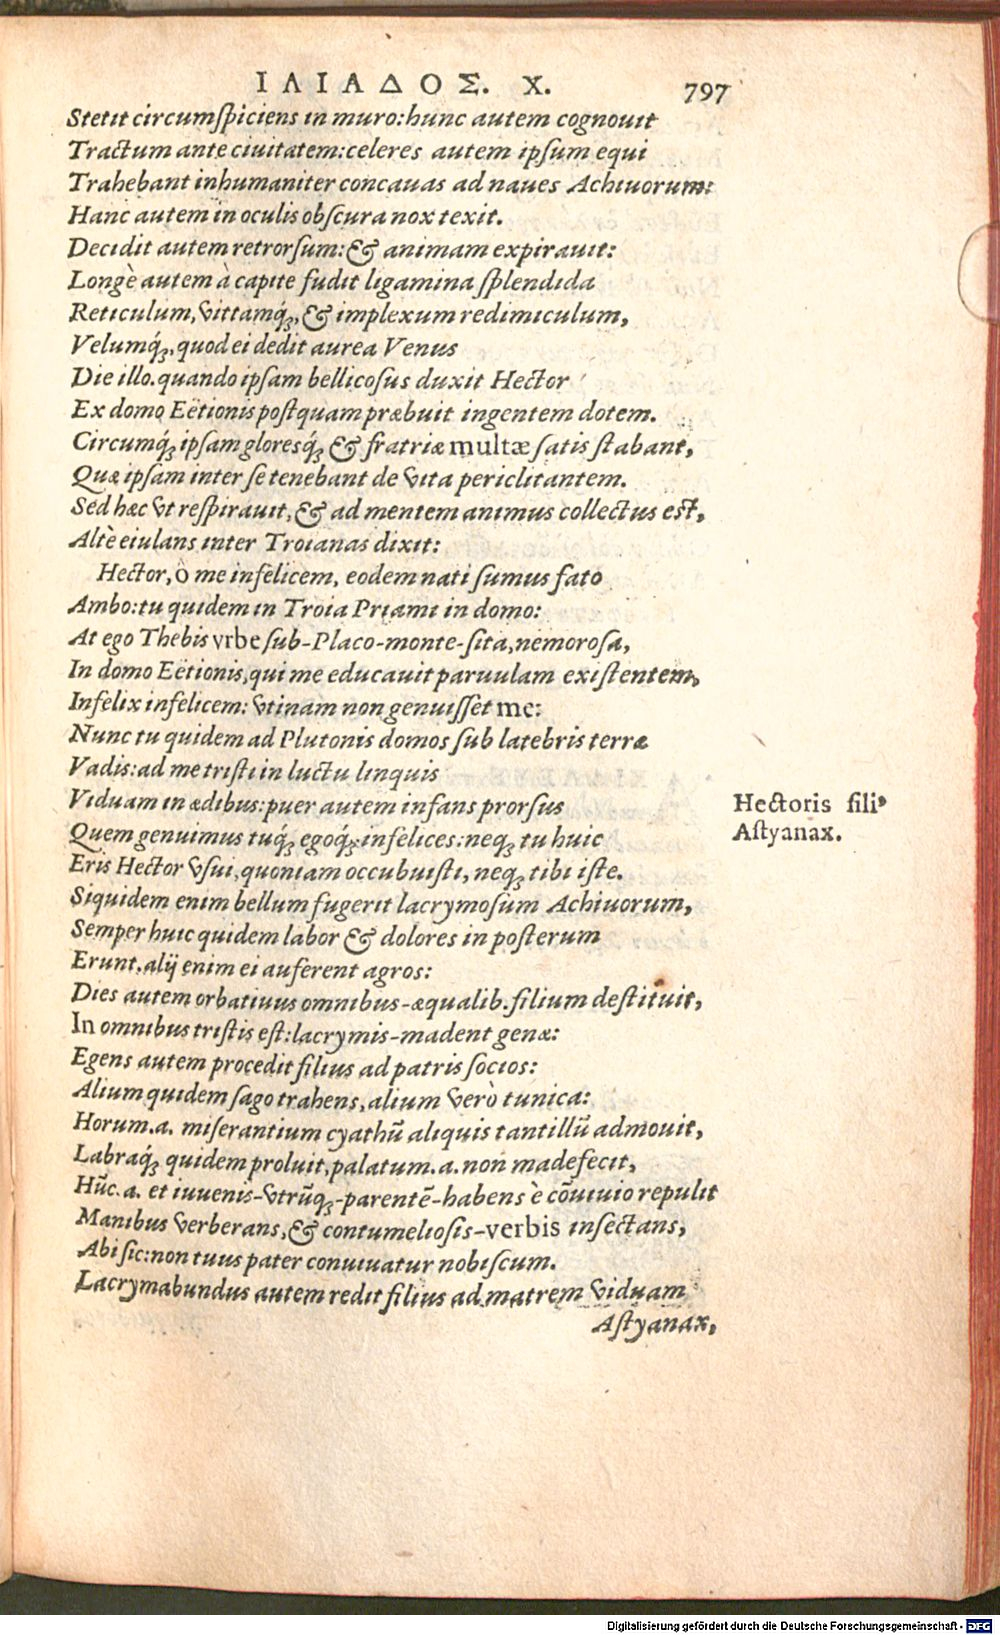 ΙΛΙΑΔΟΣ. Χ. 797
Stetit circumſpiciens in muro: hunc autem cognouit
Tractum ante ciuitatem: celeres autem ipſum equi
Trahebant inhumaniter concauas ad naues Achiuorum:
Hanc autem in oculis obſcura nox texit.
Decidit autem retrorſum: & animam expirauit:
Longè autem à capite fudit ligamina ſplendida
Reticulum, vittamq́;, & implexum redimiculum,
Velumq́;, quod ei dedit aurea Venus
Die illo. quando ipſam bellicoſus duxit Hector
Ex domo Eëtionis poſtquam præbuit ingentem dotem.
Circumq́; ipſam gloresq́; & fratriæ multæ ſatis ſtabant,
Quæ ipſam inter ſe tenebant de vita periclitantem.
Sed hæc vt reſpirauit, & ad mentem animus collectus eſt,
Altè eiulans inter Troianas dixit:
Hector, ò me infelicem, eodem nati ſumus fato
Ambo: tu quidem in Troia Priami in domo:
At ego Thebis vrbe ſub-Placo-monte-ſita, nemoroſa,
In domo Eëtionis, qui me educauit paruulam exiſtentem,
Infelix infelicem: vtinam non genuiſſet me:
Nunc tu quidem ad Plutonis domos ſub latebris terræ
Vadis: ad me triſti in luctu linquis
Viduam in ædibus: puer autem infans prorſus
Quem genuimus tuq́; egoq́; infelices: neq; tu huic
Eris Hector vſui, quoniam occubuiſti, neq; tibi iſte.
Siquidem enim bellum fugerit lacrymoſum Achiuorum,
Semper huic quidem labor & dolores in poſterum
Erunt. alij enim ei auferent agros:
Dies autem orbatiuus omnibus-æqualib. filium deſtituit,
In omnibus triſtis eſt: lacrymis-madent genæ:
Egens autem procedit filius ad patris ſocios:
Alium quidem ſago trahens, alium verò tunica:
Horum. a. miſerantium cyathū aliquis tantillū admouit,
Labraq́; quidem proluit, palatum. a. non madefecit,
Hūc. a. et iuuenis-vtrūq;-parentē-habens è cōuiuio repulit
Manibus verberans, & contumelioſis-verbis inſectans,
Abi ſic: non tuus pater conuiuatur nobiſcum.
Lacrymabundus autem redit filius ad matrem viduam
Aſtyanax,
Hectoris filiꝰ
Aſtyanax.
Digitalisierung gefördert durch die Deutsche Forschungsgemeinschaft - DFG